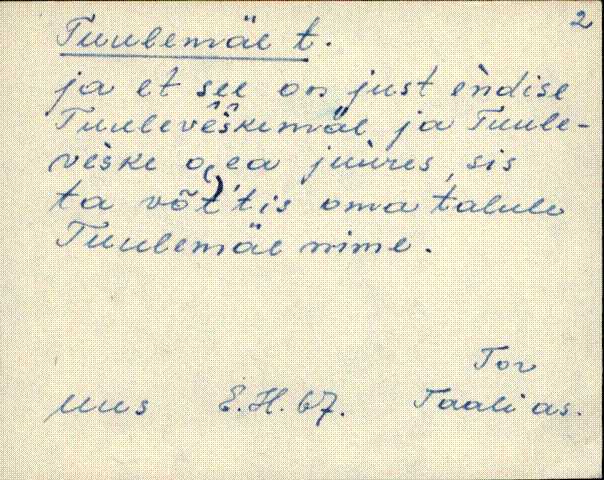 2
Tuulemäe t.
ja et see on just èndise
Tuulevêškemäe ja Tuule-
vèske o ea juùres, sis
ta võt't'is oma talule
Tuulemäe nime.
Tor
Uus E.H. 67. Taali as.